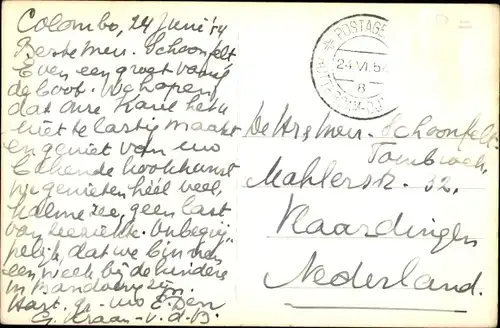 Colombo, 24 Juni '54
Beste Mevr. Schoonfelt
Even een groet vanaf
de boot. We hopen,
dat onze Karel het U
niet te lastig maakt
en geniet van uw
bekende kookkunst
wij genieten héél veel,
kalme zee, geen last
van zeeziekte. Onbegrij"
pelijk, dat we binnen
een week bij de kinderen
in Bandoeng zijn.
Hart. gr. uw E. Den
G. Kraan - v. d. B.
POSTAGE
24 VI. 5
8
De Hr & Mevr. Schoonfelt-
Mahlerstr. 32.
Vlaardingen
Nederland.